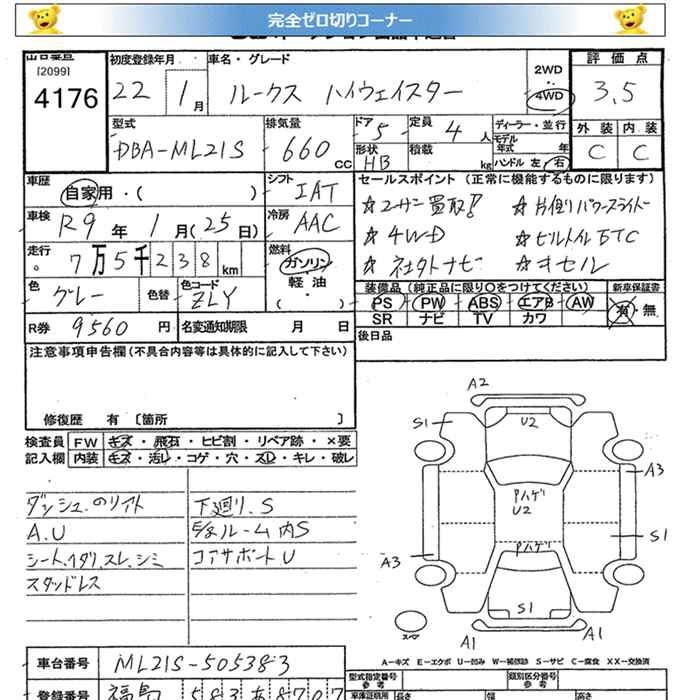 完全ゼロ切りコーナー
[2099]
4176
初度登録年月
22 1月
車名・グレード
ルークス ハイウェイスター
2WD
・
4WD
評価点
3.5
型式
DBA-ML21S
排気量
660 CC
ドア 5
定員 4 人
形状 HB
積載 kg
ディーラー・並行
モデル年式 年
ハンドル 左 右
外装 内装
C C
車歴
自家用・( )
シフト IAT
車検
R9年 1月(25日)
冷房 AAC
走行
7万5千238km
燃料
ガソリン
・
軽油
( )
色 グレー
色替
色コード ZLY
R券 9560 円
名変通知期限 月 日
セールスポイント (正常に機能するものに限ります)
☆ユーザー買取! ☆片側パワースライドドー
☆4WD ☆ビルトインETC
☆社外ナビ ☆キセル
装備品 (純正品に限り○をつけてください)
PS PW ABS エアB AW
SR ナビ TV カワ
新車保証書
有・無
後日品
注意事項申告欄(不具合内容等は具体的に記入して下さい)
修復歴 有 〔箇所 〕
検査員記入欄
FW キズ・飛石・ヒビ割・リペア跡・×要
内装 キズ・汚レ・コゲ・穴・スレ・キレ・破レ
ダッシュ.のリイト
A.U
シート.ヘタリ.スレ.シミ
スタッドレス
下廻り.S
コアサポートU
A2
S1
U2
A3
Pハゲ
U2
Pハゲ
S1
A3
S1
A1
A1
スペア
A-キズ E-エクボ U-凹み W-補修跡 S-サビ C-腐食 XX-交換済
車台番号 ML21S-505383
登録番号 福島 583 あ 8707
型式指定番号
参考
類別区分番号
参考
長さ 幅 高さ